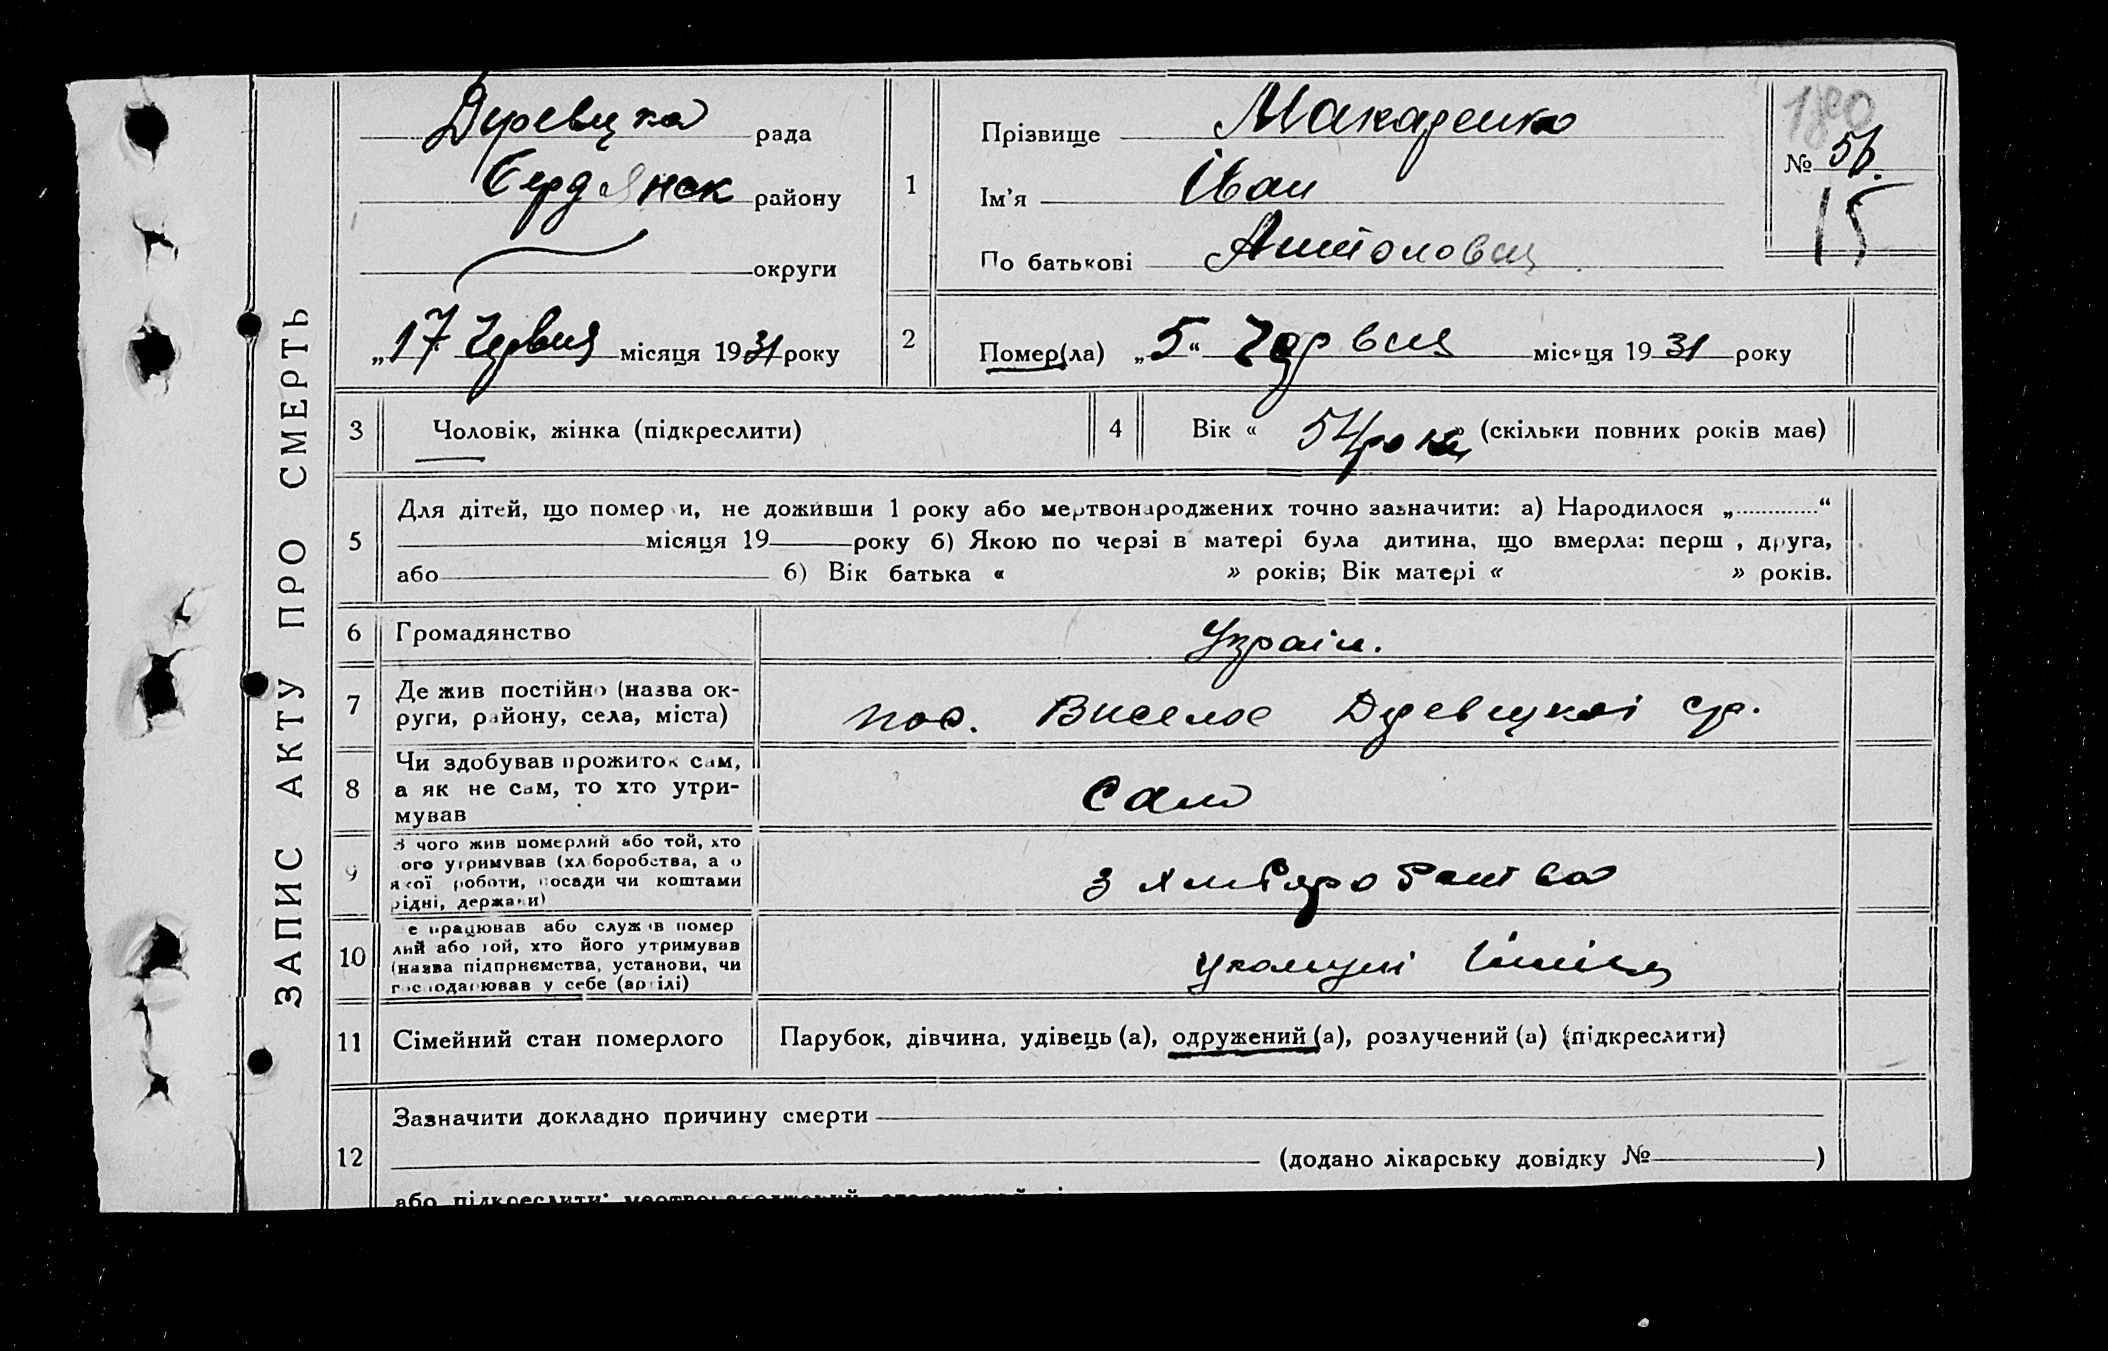 ЗАПИС АКТУ ПРО СМЕРТЬ
Деревецка рада
Бердянск району
округи
„17“ Червня місяця 1931 року
1
Прізвище Макаренко
Ім'я Іван
По батькові Антонович
180
№ 5б.
15
2
Помер(ла) „5“ Червня місяця 1931 року
3 Чоловік, жінка (підкреслити)
4 Вік « 54 роки » (скільки повних років має)
5
Для дітей, що помер и, не доживши 1 року або мертвонароджених точно зазначити: а) Народилося „ “
місяця 19 року б) Якою по черзі в матері була дитина, що вмерла: перш , друга,
або б) Вік батька « » років; Вік матері « » років.
6 Громадянство Україн.
7 Де жив постійно (назва ок-
руги, району, села, міста)
пос. Виселое Деревецкоі ср.
8 Чи здобував прожиток сам,
а як не сам, то хто утри-
мував
Сам
9 З чого жив померлий або той, хто
ого утримував (хліборобства, а о
якої роботи, посади чи коштами
рідні, держави)
з
10 е працював або служив помер
лий або той, хто його утримував
(назва підприємства, установи, чи
господарював у себе (артілі)
укомуні
11 Сімейний стан померлого Парубок, дівчина, удівець (а), одружений (а), розлучений (а) (підкреслити)
12
Зазначити докладно причину смерти
(додано лікарську довідку № )
або підкреслити: